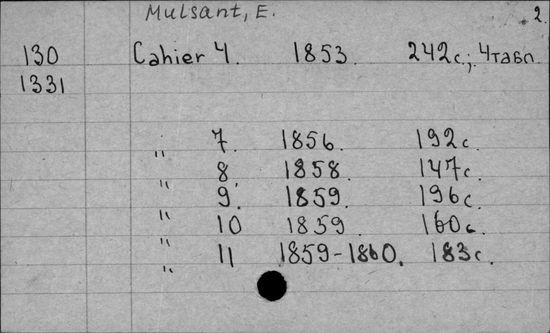 Mulsant, E. 2.
130 Cahier 4. 1853. 242с.; 4табл.
1331
" 7. 1856. 192с.
" 8 1858. 147с.
" 9. 1859. 196с.
" 10 1859. 160с.
" 11 1859-1860. 183с.